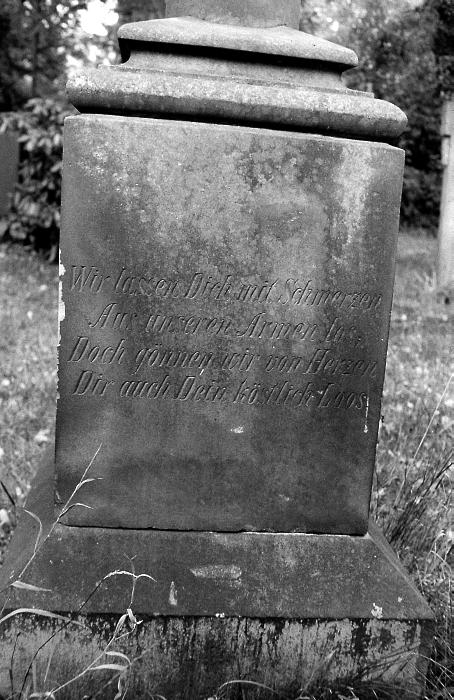 Wir lassen Dich mit Schmerzen
Aus unseren Armen los,
Doch gönnen wir von Herzen
Dir auch Dein köstlich Loos.